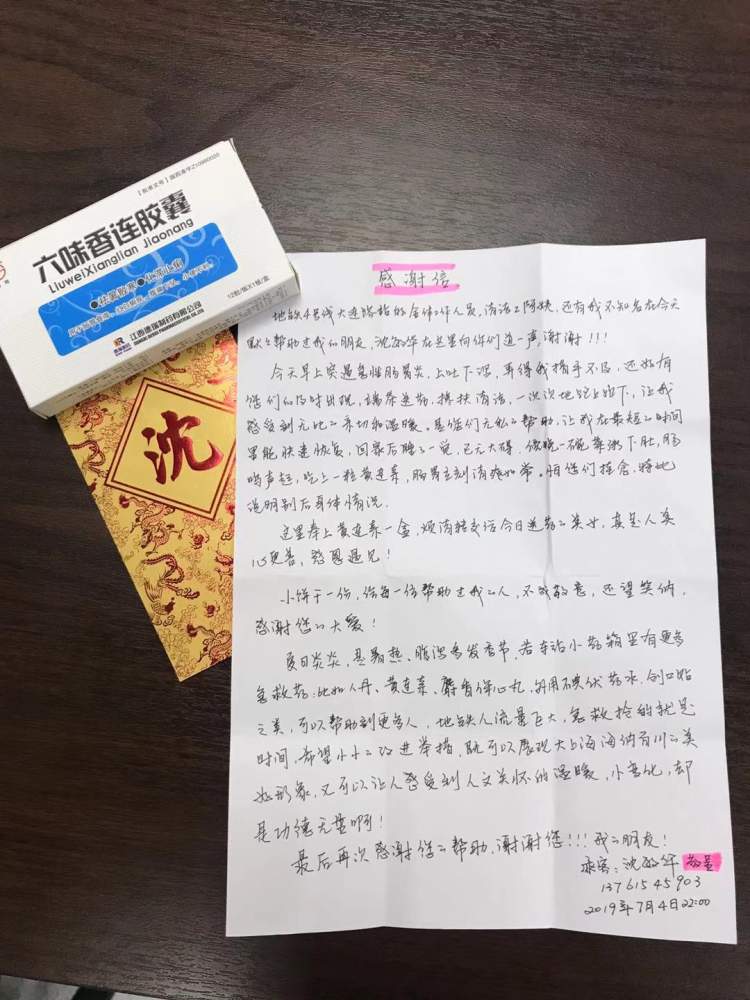 【批准文号】国药准字Z10980055
六味香连胶囊
LiuweiXianglian Jiaonang
12粒/板X1板/盒
江西德瑞制药有限公司
沈
感谢信
地铁4号线大连路站的全体工作人员,清洁工阿姨,还有我不知名在今天
默默帮助过我的朋友,沈 华在这里向你们道一声谢谢!!!
今天早上突遇急性肠胃炎,上吐下泻,弄得我措手不及,还好有
您们的及时出现,端茶送药,搀扶清洁,一次次地跑上跑下,让我
感受到无比的亲切和温暖。是您们无私的帮助,让我在最短的时间
里能快速恢复,回家后睡了一觉,已无大碍,傍晚一碗薄粥下肚,肠
鸣声起,吃上一粒黄连素,肠胃立刻清爽如常。怕您们挂念,特地
说明别后身体情况。
这里奉上黄连素一盒,烦请转交给今日送药的美女,真是人美
心更善,感恩遇见!
小饼干一份,给每一位帮助过我的人,不成敬意,还望笑纳,
感谢您的大爱!
夏日炎炎,患暑热、腹泻多发季节,若车站小药箱里有更多
急救药:比如人丹、黄连素、麝香保心丸、外用不 药水、创口贴
之类,可以帮助到更多人,地铁人流量巨大,急救抢的就是
时间,希望小小的改进举措,既可以展现大上海海纳百川的美
好形象,又可以让人感受到人文关怀的温暖,小变化,却
是功德无量啊!
最后再次感谢您的帮助,谢谢您!!!我的朋友!
乘客:沈 华 敬呈
13761545903
2019年7月4日22:00